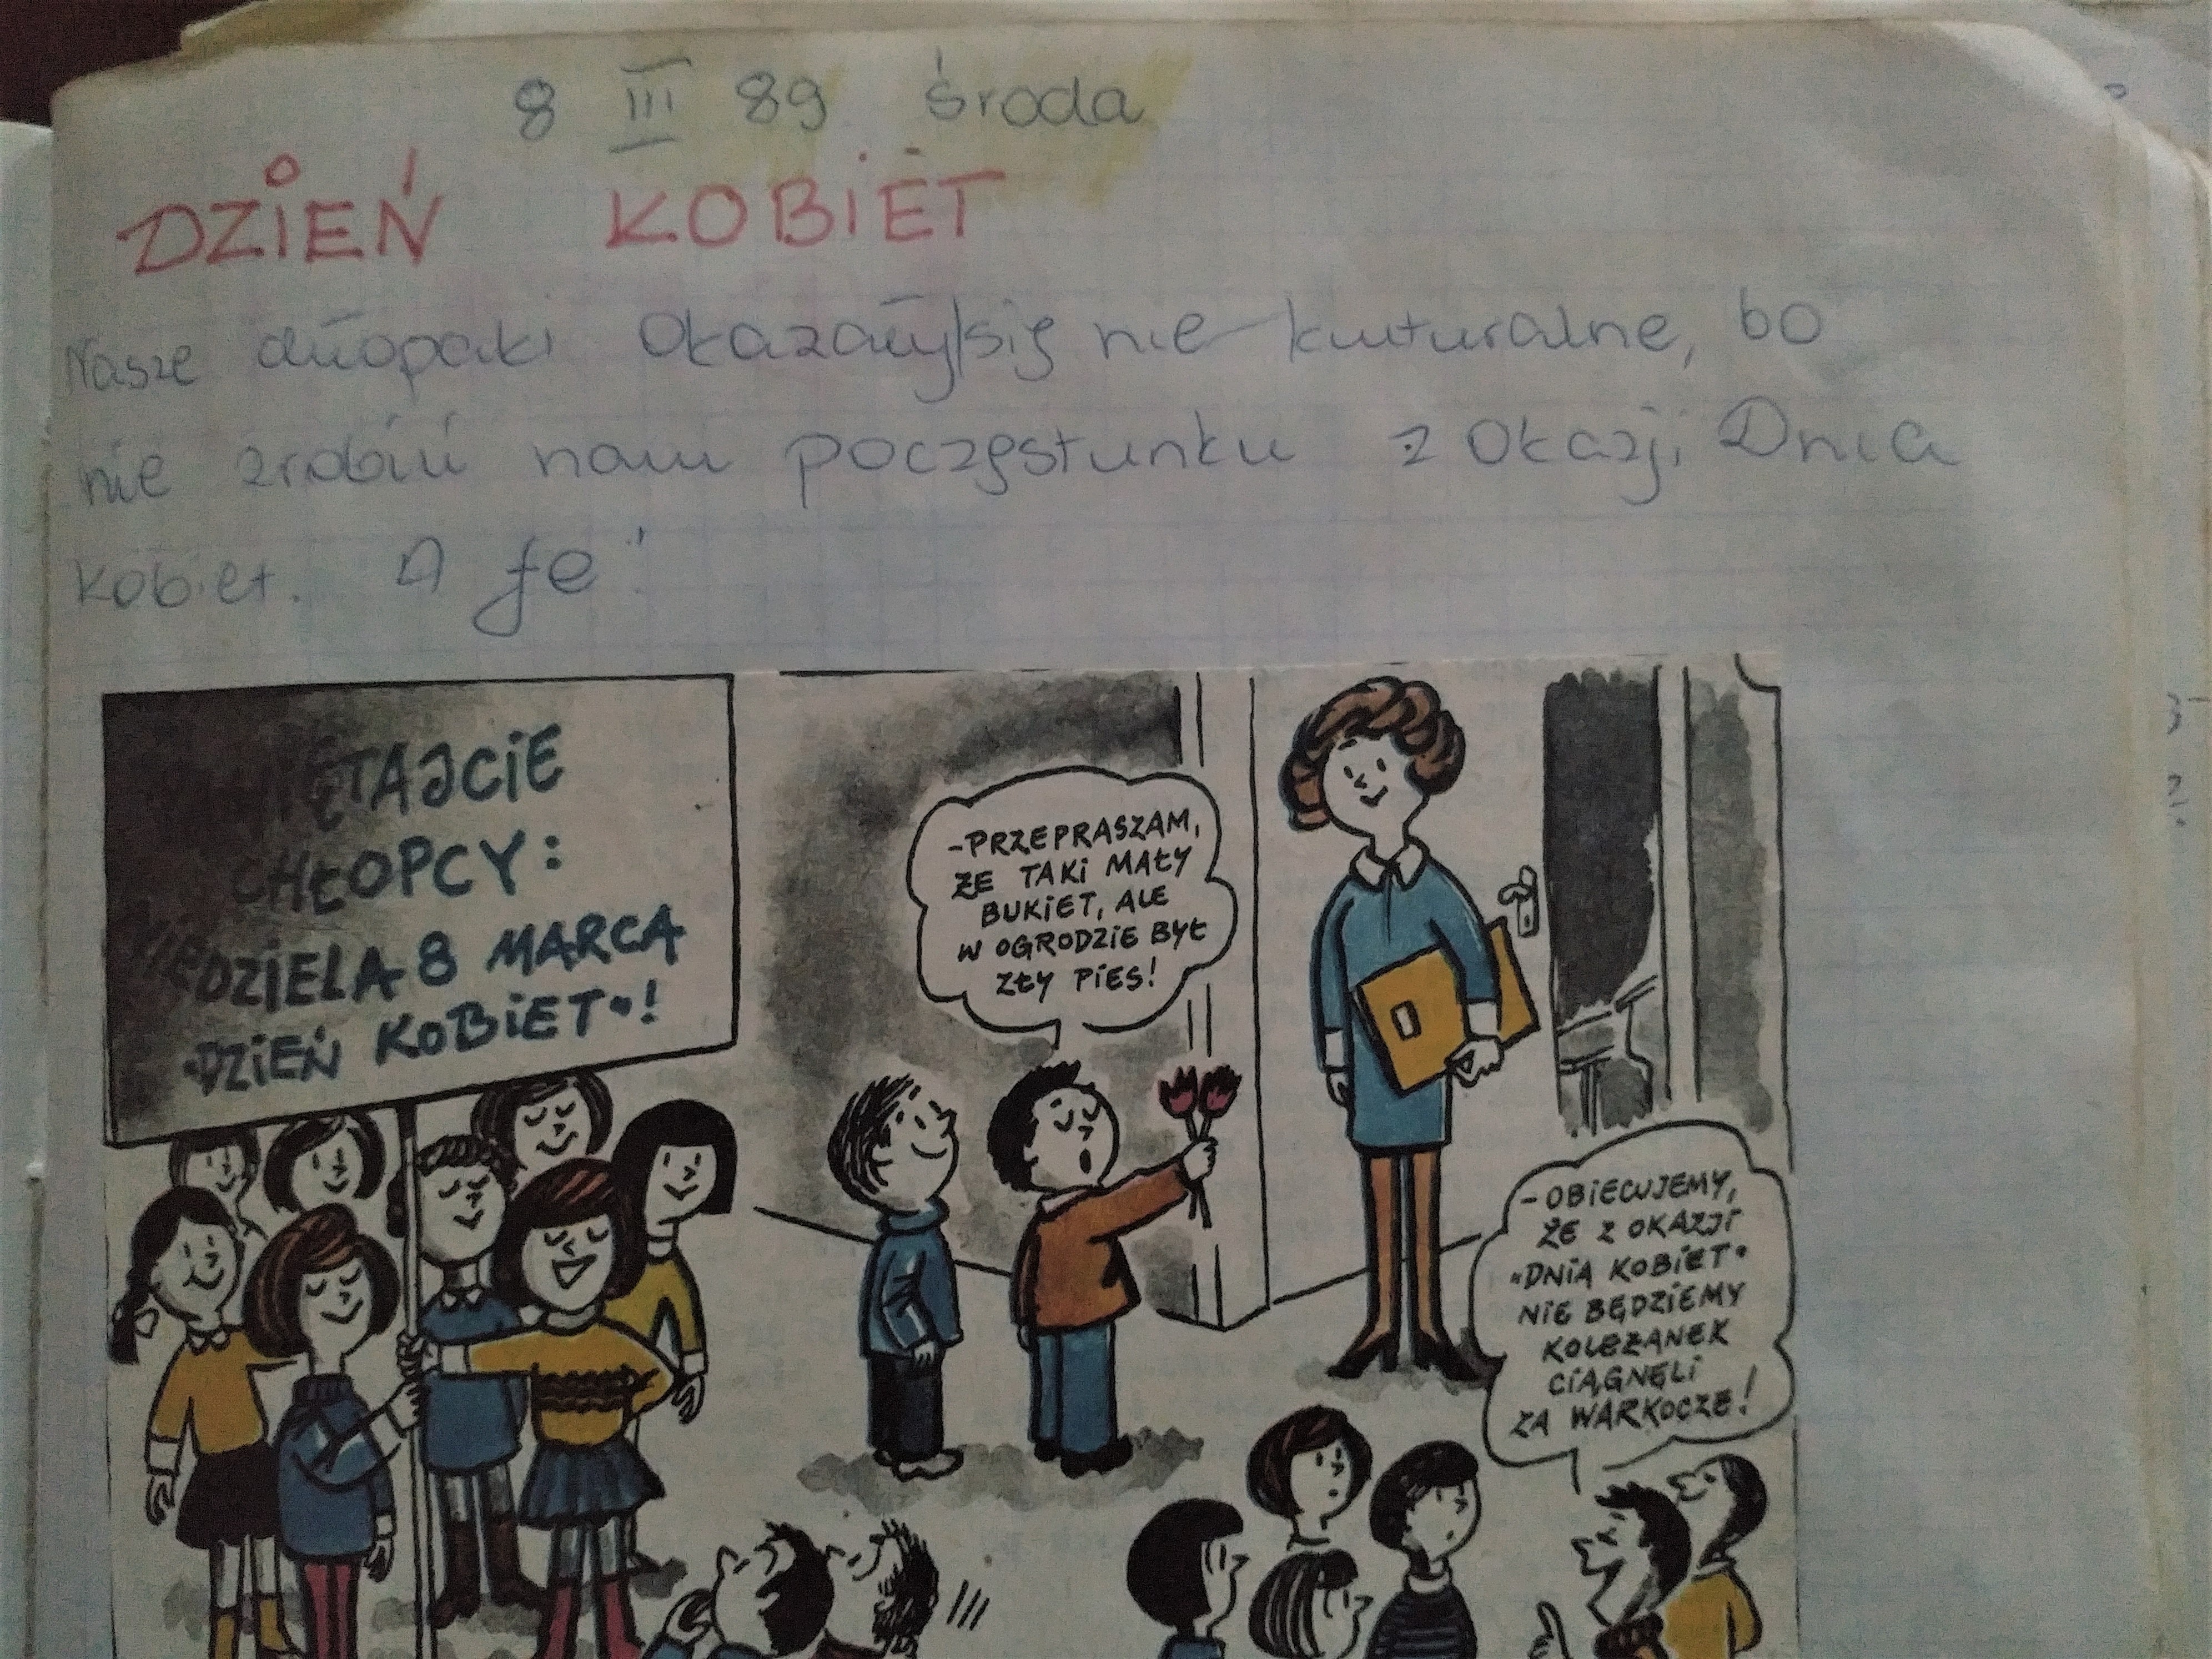 8 III 89 środa
DZIEŃ KOBIET
Nasze chłopaki okazały się nie kulturalne, bo
nie zrobili nam poczęstunku z okazji Dnia
kobiet. A fe!
CHŁOPCY:
NIEDZIELA 8 MARCA
"DZIEŃ KOBIET"!
-PRZEPRASZAM,
ŻE TAKI MAŁY
BUKIET, ALE
W OGRODZIE BYŁ
ZŁY PIES!
-OBIECUJEMY,
ŻE Z OKAZJI
"DNIA KOBIET"
NIE BĘDZIEMY
KOLEŻANEK
CIĄGNĘLI
ZA WARKOCZE!